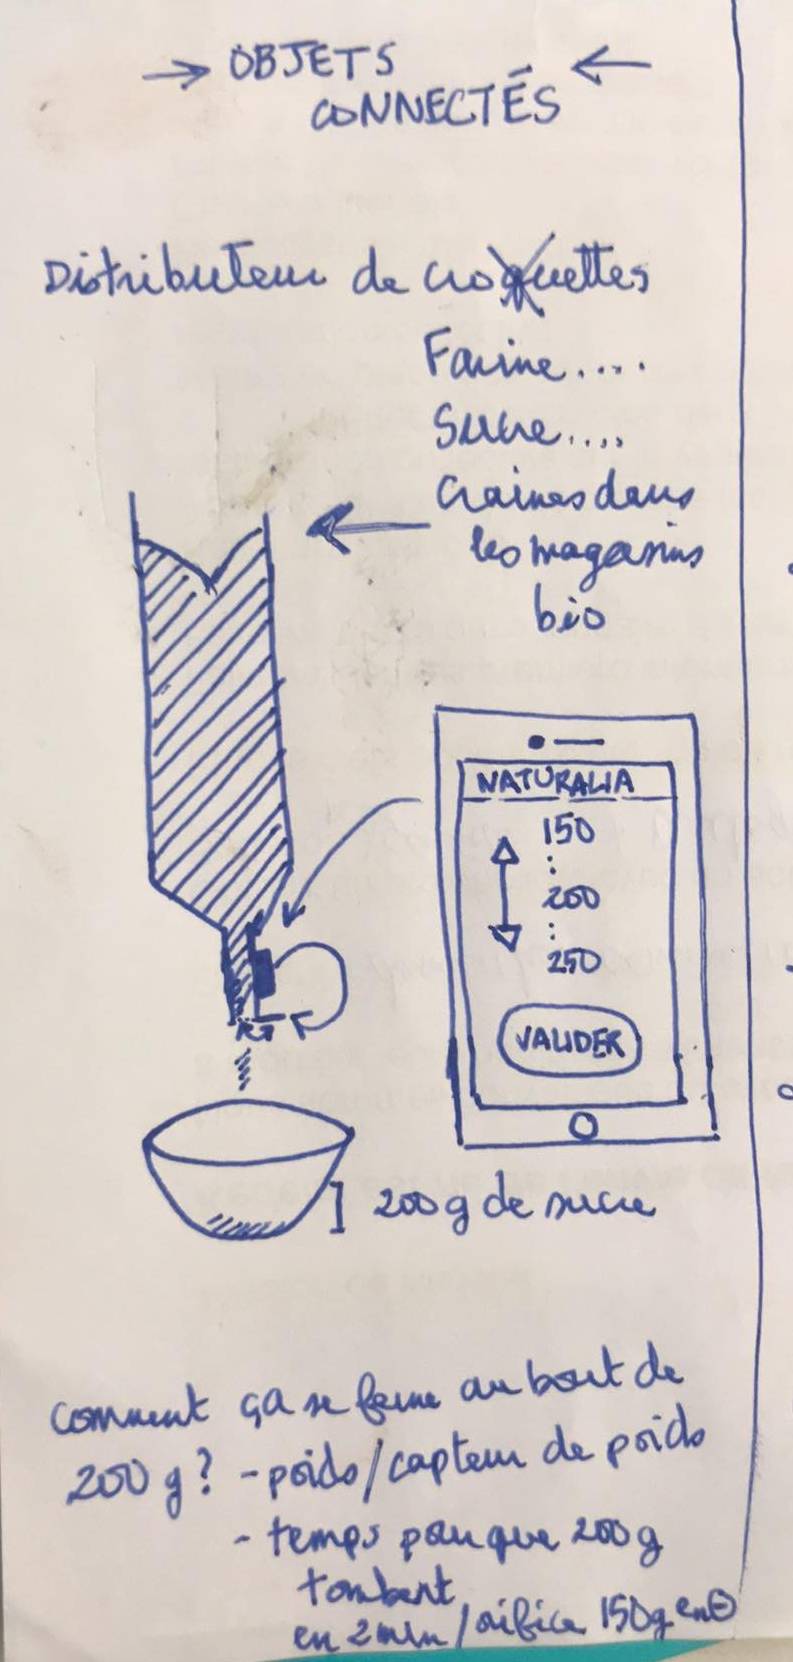 → OBJETS ←
CONNECTÉS
Distributeur de croquettes
Farine....
Sucre....
Graines dans
les magasins
bio
NATURALIA
150
:
200
:
250
VALIDER
200g de sucre
comment ça se ferme au bout de
200g? - poids/capteur de poids
- temps pour que 200g
tombent
en 2min / orifice 150g en